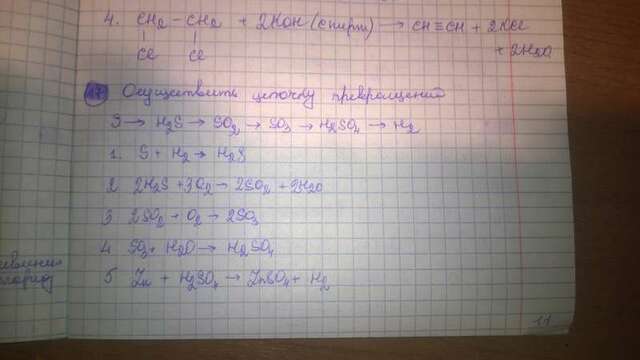 4. CH2 - CH2 + 2KOH (спирт) → CH≡CH + 2KCl
Cl Cl + 2H2O
17 Осуществить цепочку превращений
S → H2S → SO2 → SO3 → H2SO4 → H2
1. S + H2 → H2S
2 2H2S + 3O2 → 2SO2 + 2H2O
3 2SO2 + O2 → 2SO3
4 SO3 + H2O → H2SO4
5 Zn + H2SO4 → ZnSO4 + H2
11